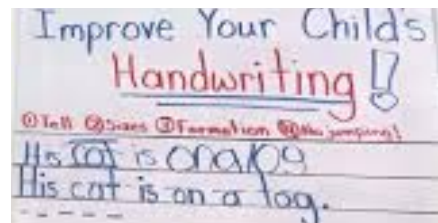 Improve Your Child's
Handwriting!
① Tell ② Sizes ③ Formation ④ No jumping!
His cat is onalog
His cat is on a log.